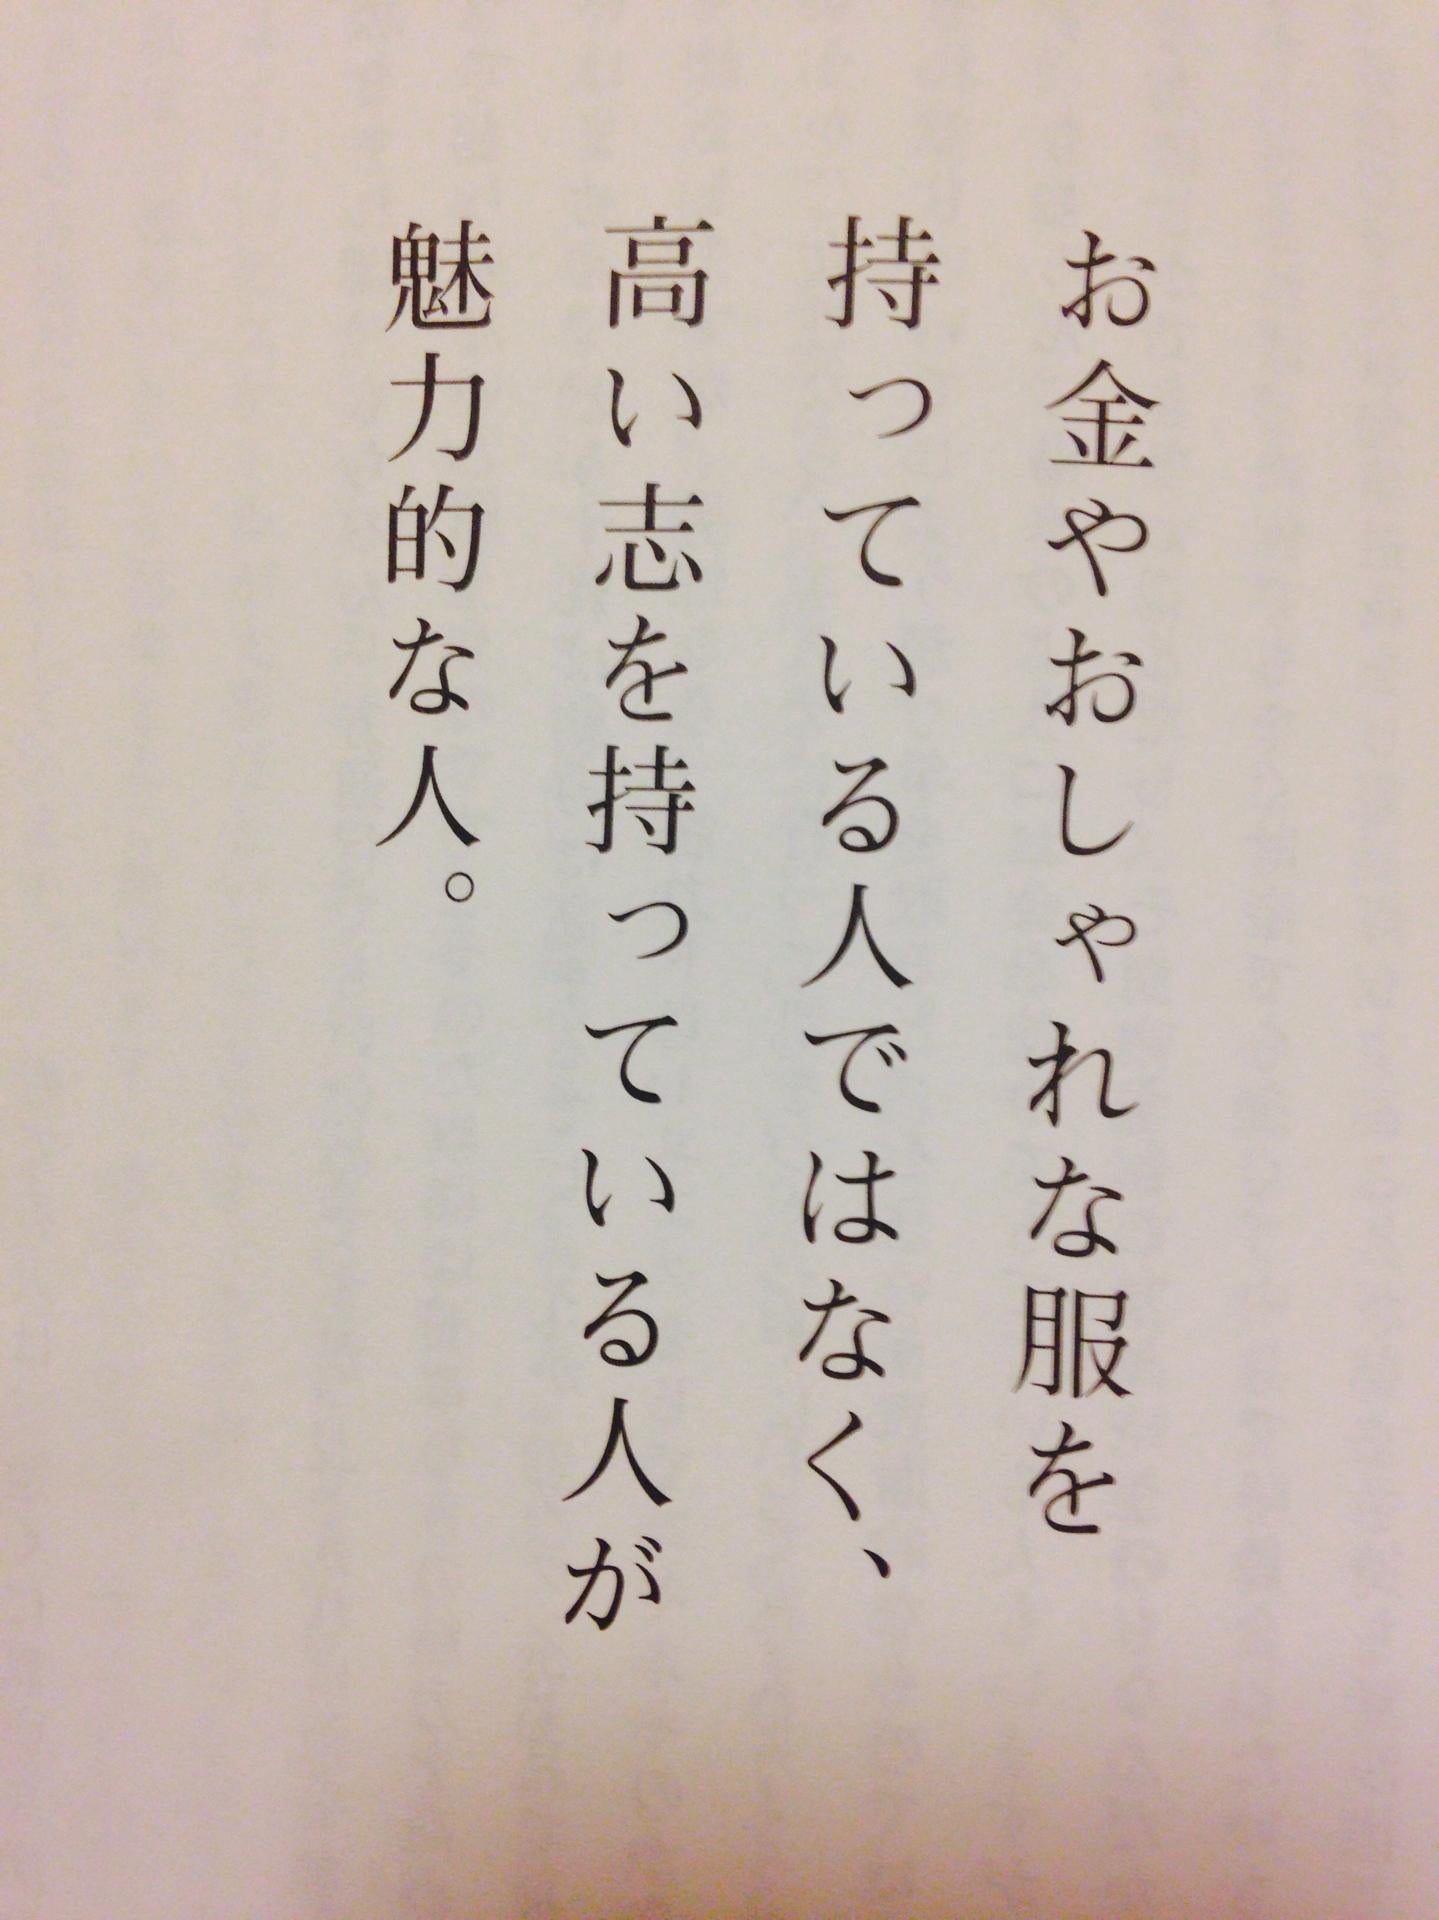 お金やおしゃれな服を
持っている人ではなく、
高い志を持っている人が
魅力的な人。